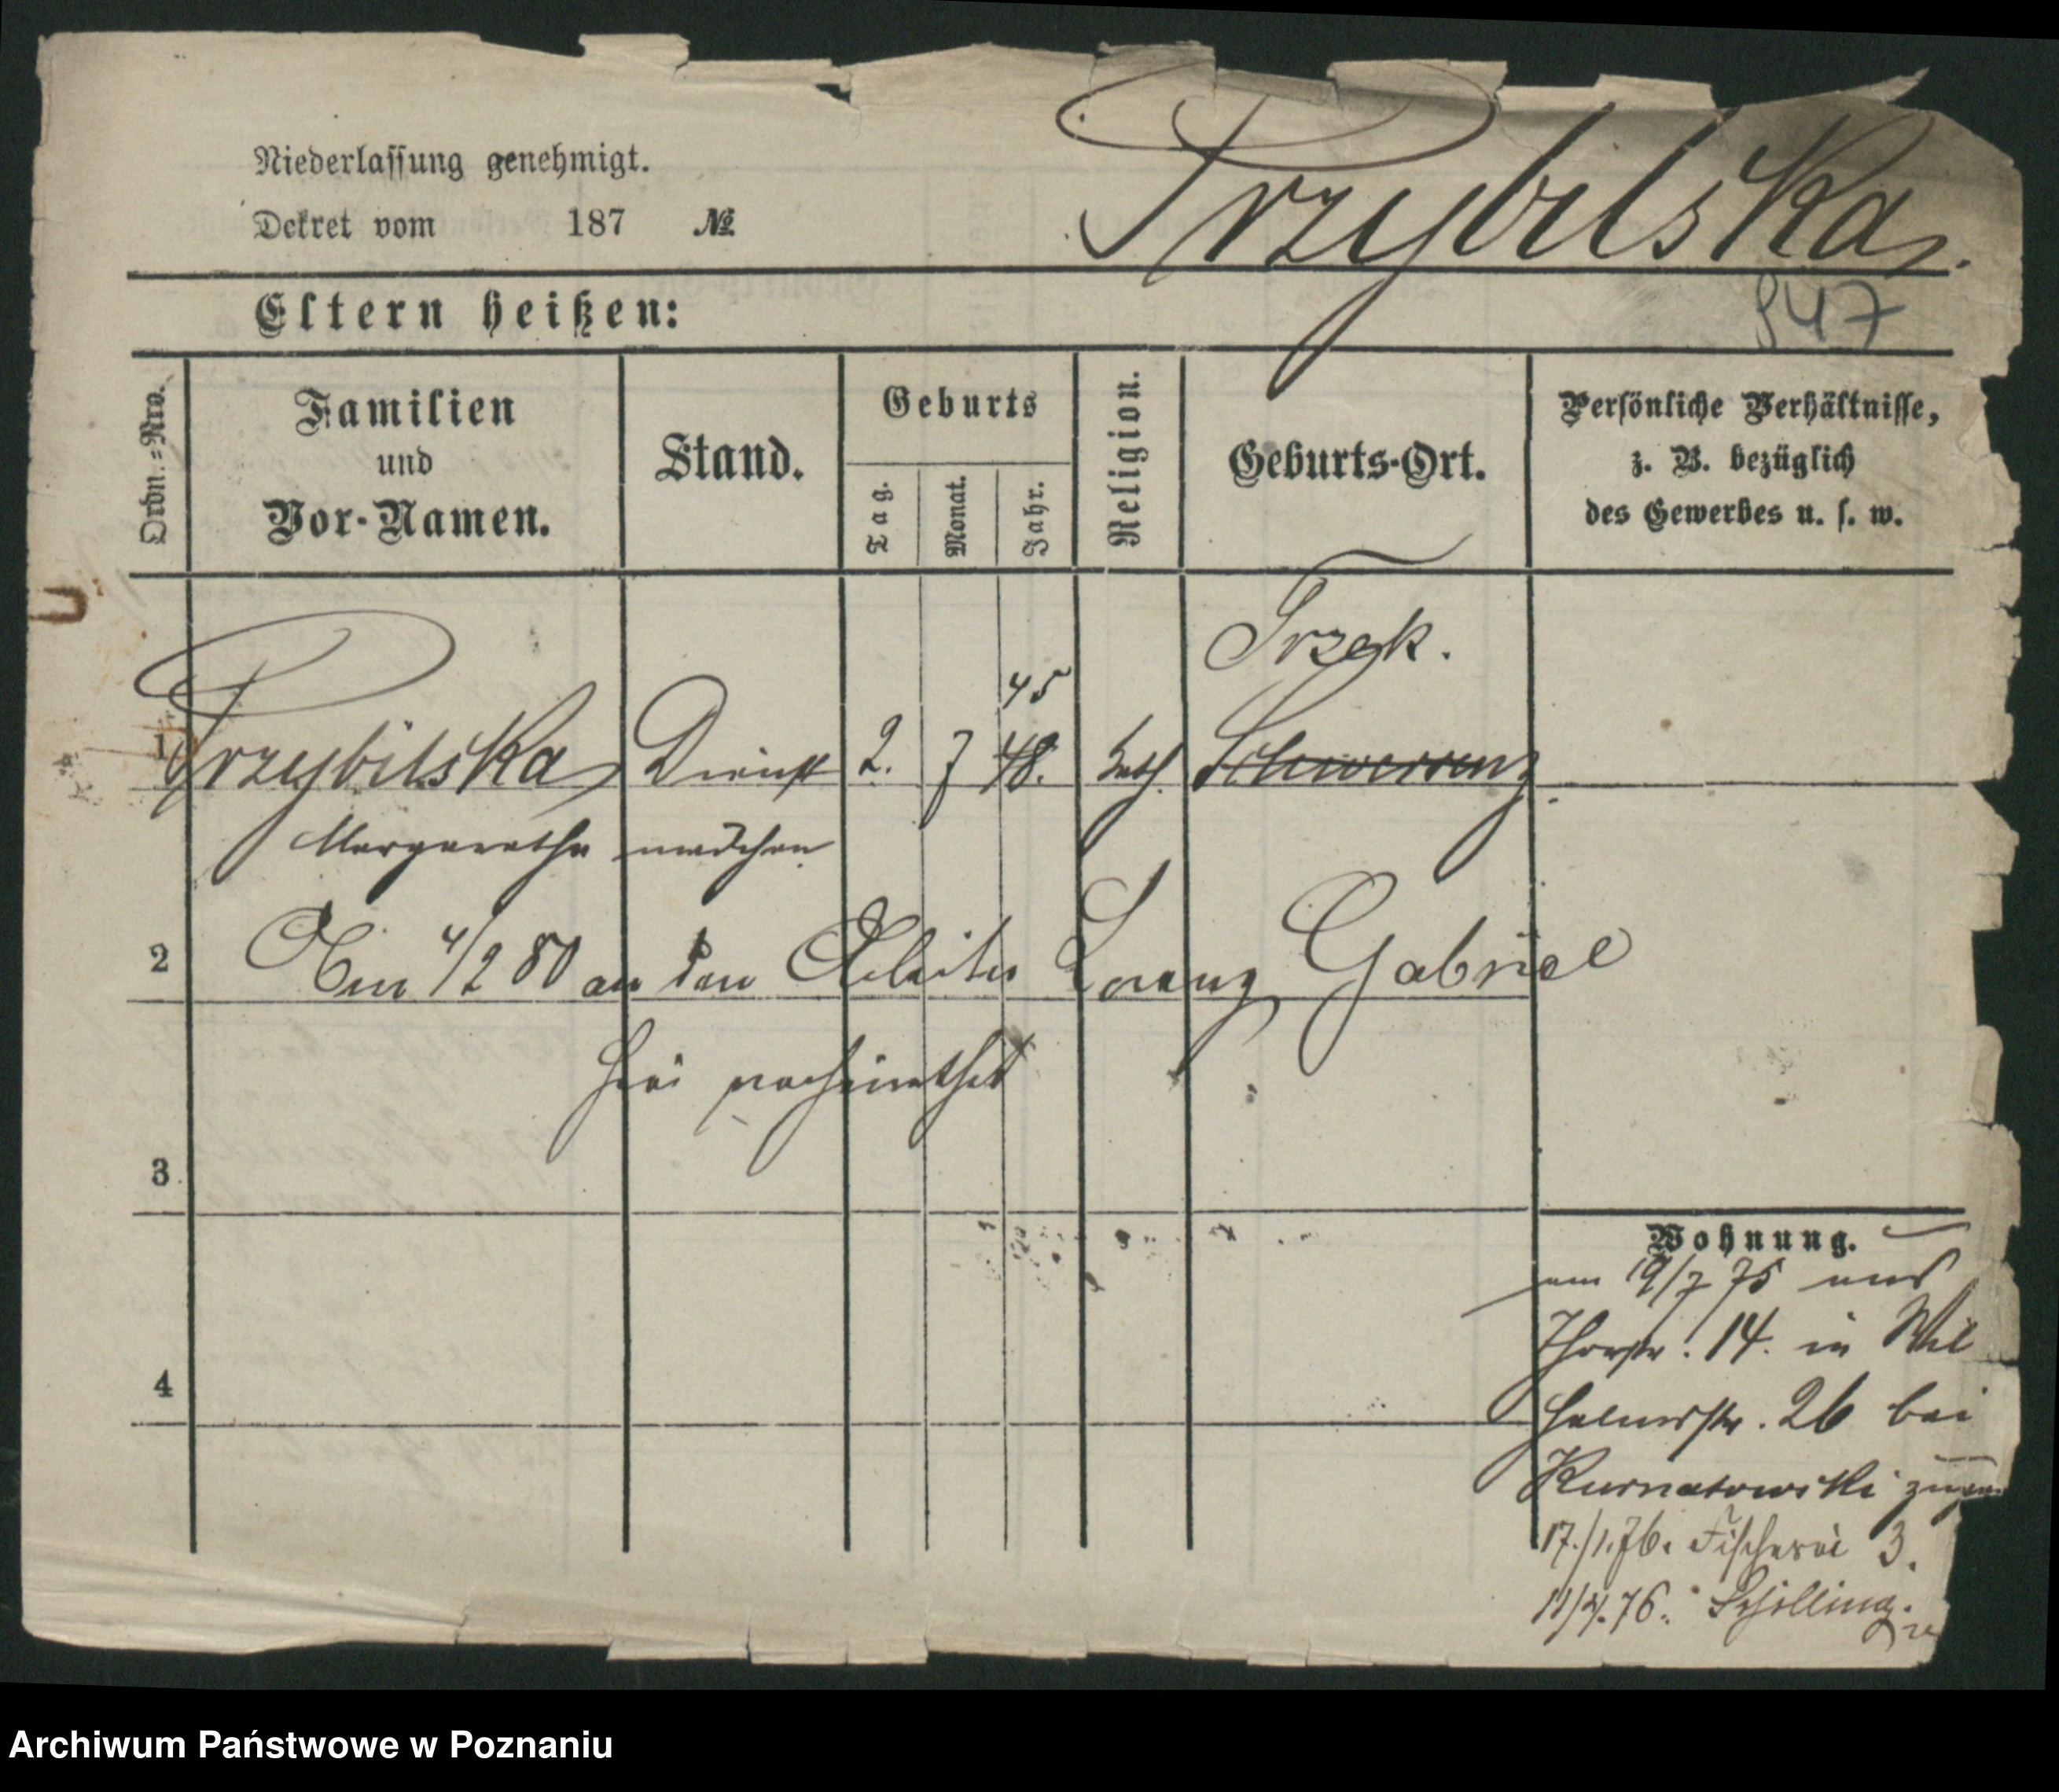 Przybilska.
Niederlassung genehmigt.
Dekret vom 187 №
947
Eltern heißen:
Ordn.-Nro.
Familien
und
Vor-Namen.
Stand.
Geburts
Tag.
Monat.
Jahr.
Religion.
Geburts-Ort.
Persönliche Verhältnisse,
z. B. bezüglich
des Gewerbes u. s. w.
Trzek.
45
1 Przybilska Dienst 2. 7 48. kath. Schwersenz
Margarethe mädchen
2 Am 4/2 80 an den Arbeiter Lorenz Gabriel
hier verheirathet
3
Wohnung.
am 19/7 75 aus
Thorstr. 14. in Wil
4
helmsstr. 26 bei
Kurnatowski
17./1.76. Fischerei 3.
11/4.76. Schilling.
Archiwum Państwowe w Poznaniu